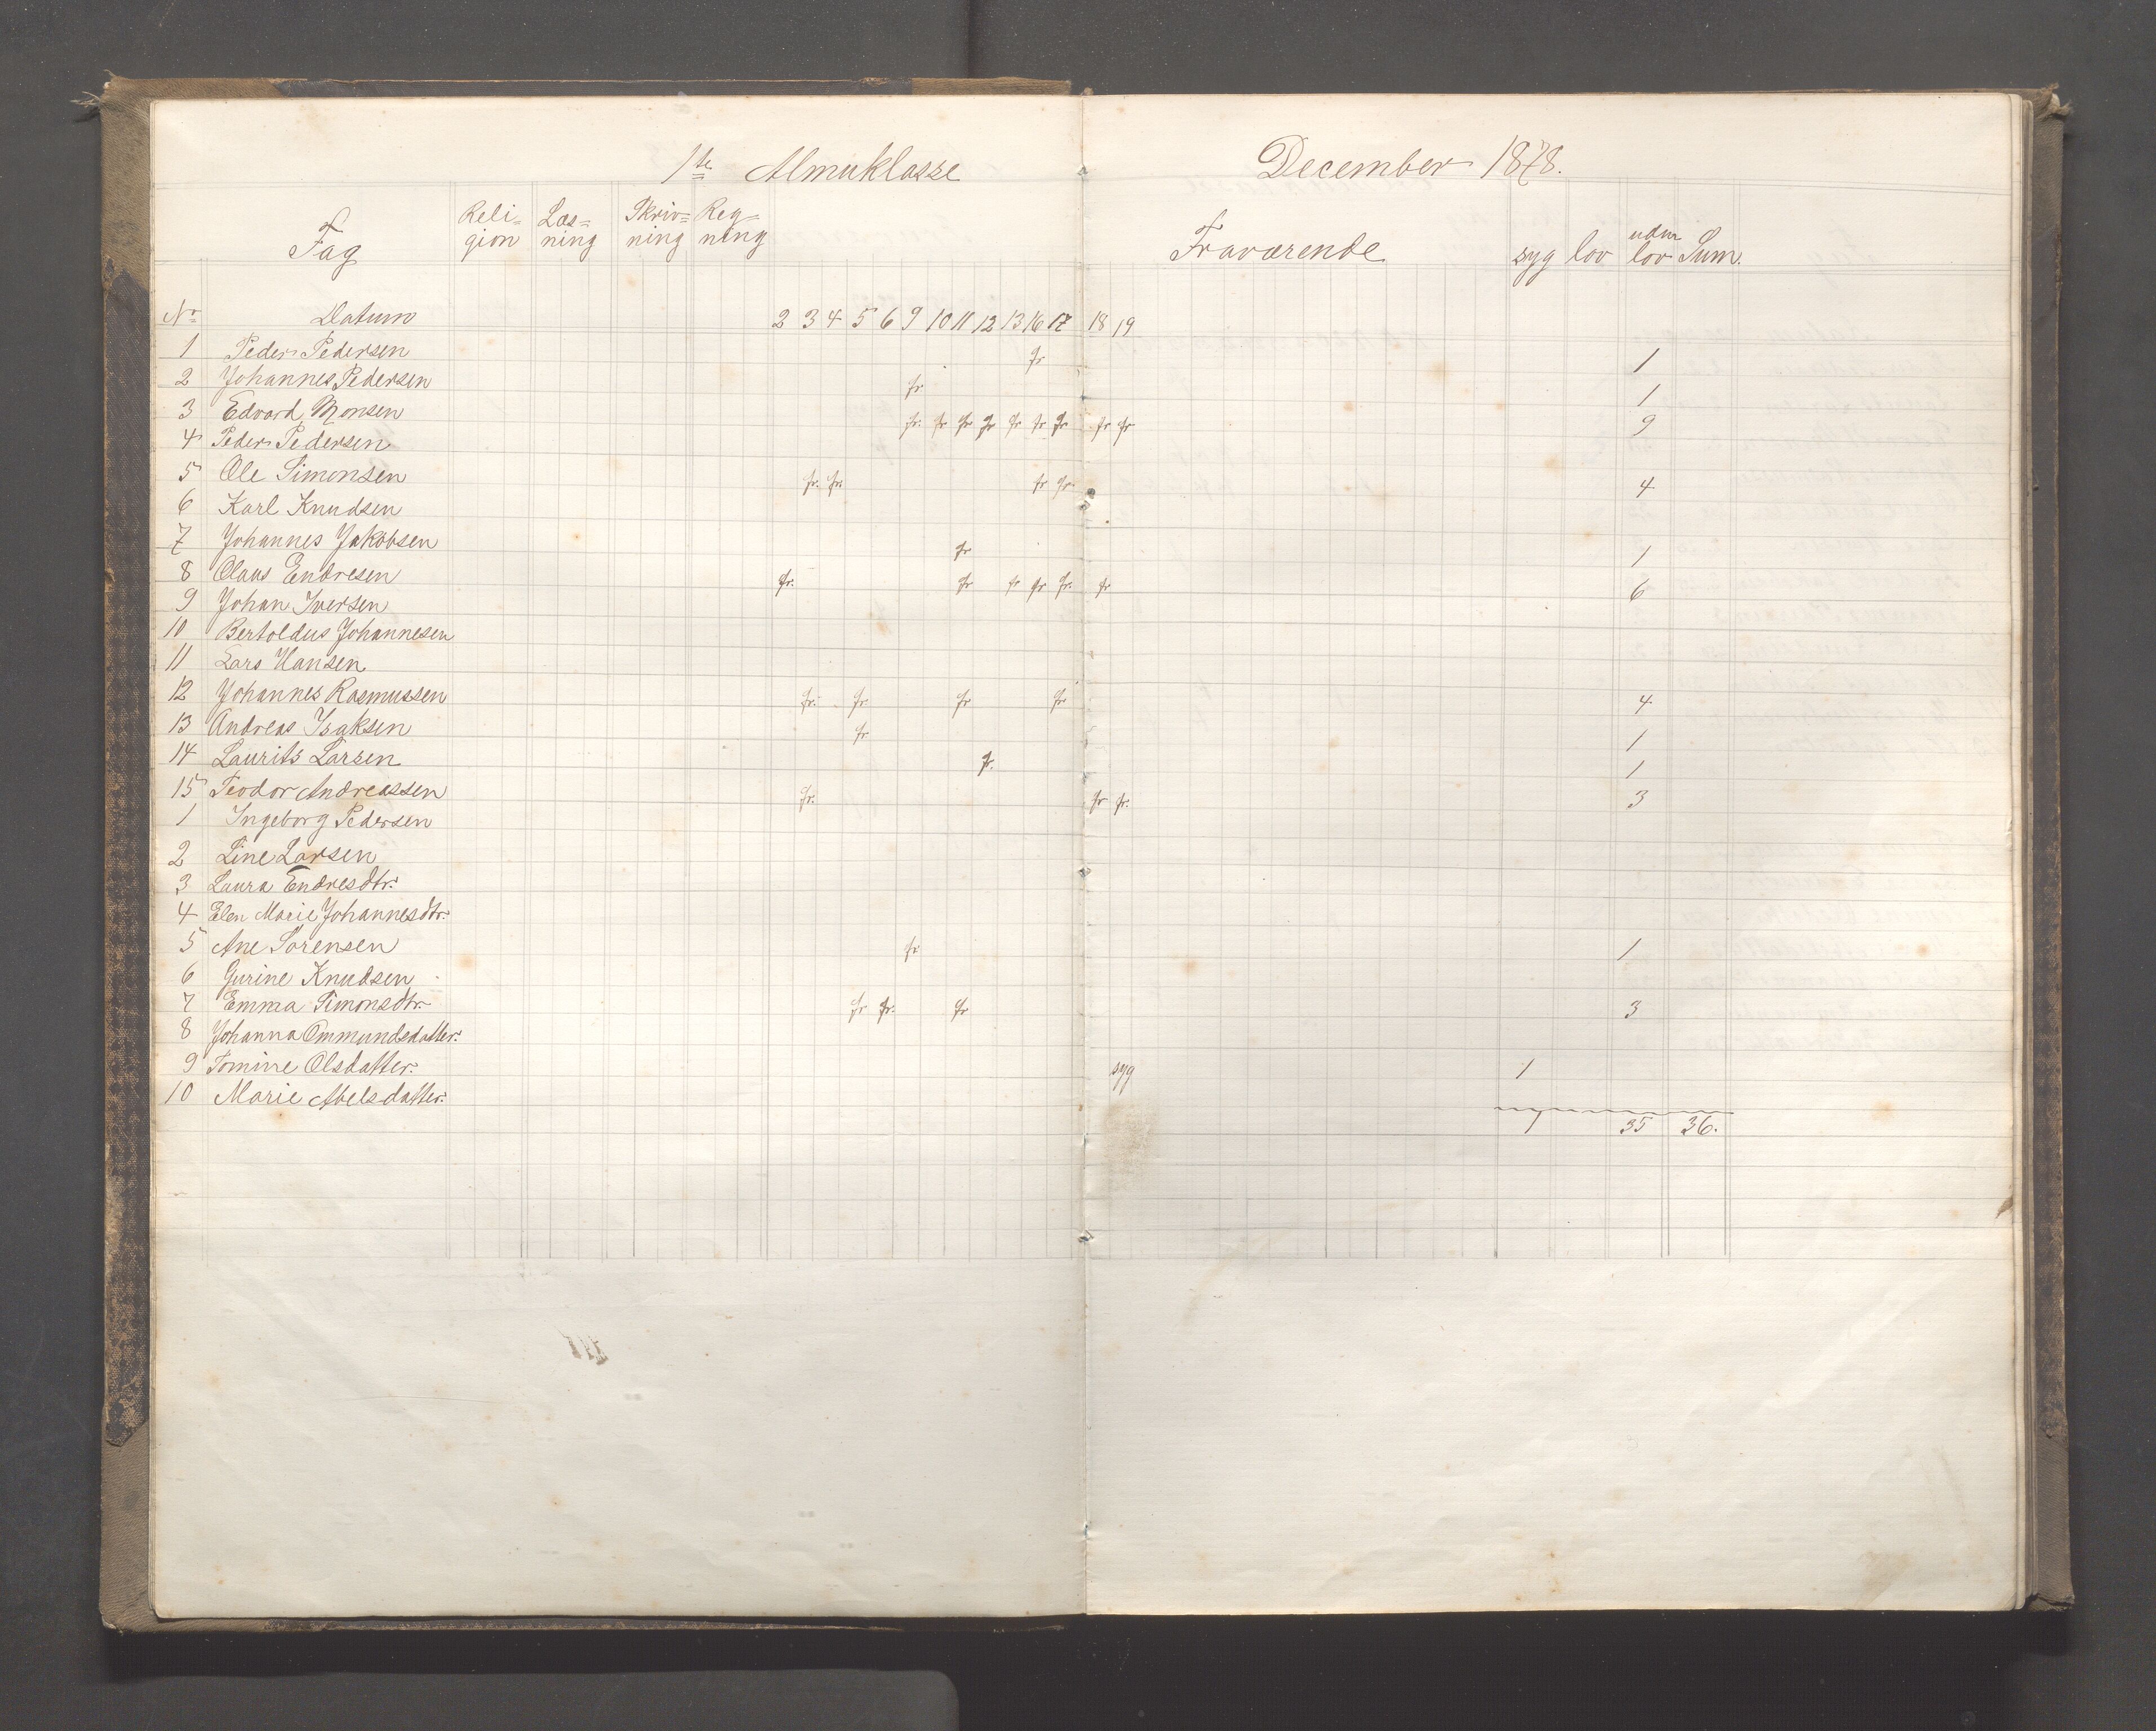 1te Almuklasse December 1878.
Fag Reli= Læs= Skriv= Reg= Fraværende syg lov uden Sum.
gion ning ning ning lov
No Datum 2 3 4 5 6 9 10 11 12 13 16 17 18 19
1 Peder Pedersen fr 1
2 Johannes Pedersen fr 1
3 Edvard Monsen fr. fr fr fr fr fr fr fr fr 9
4 Peder Pedersen
5 Ole Simonsen fr. fr. fr fr. 4
6 Karl Knudsen
7 Johannes Jakobsen fr 1
8 Olaus Endresen fr. fr fr fr fr. fr 6
9 Johan Iversen
10 Bertoldus Johannesen
11 Lars Hansen
12 Johannes Rasmussen fr. fr fr fr 4
13 Andreas Isaksen fr 1
14 Laurits Larsen fr. 1
15 Teodor Andreassen fr. fr fr. 3
1 Ingeborg Pedersen
2 Line Larsen
3 Laura Endresdtr.
4 Elen Marie Johannesdtr.
5 Ane Sorensen fr 1
6 Gurine Knudsen
7 Emma Simonsdtr. fr fr. fr 3
8 Johanna Ommundsdatter.
9 Tomine Olsdatter. syg 1
10 Marie Abelsdatter.
1 35 36.